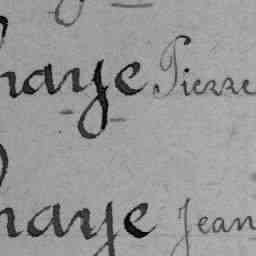 haye Pierre
haye Jean